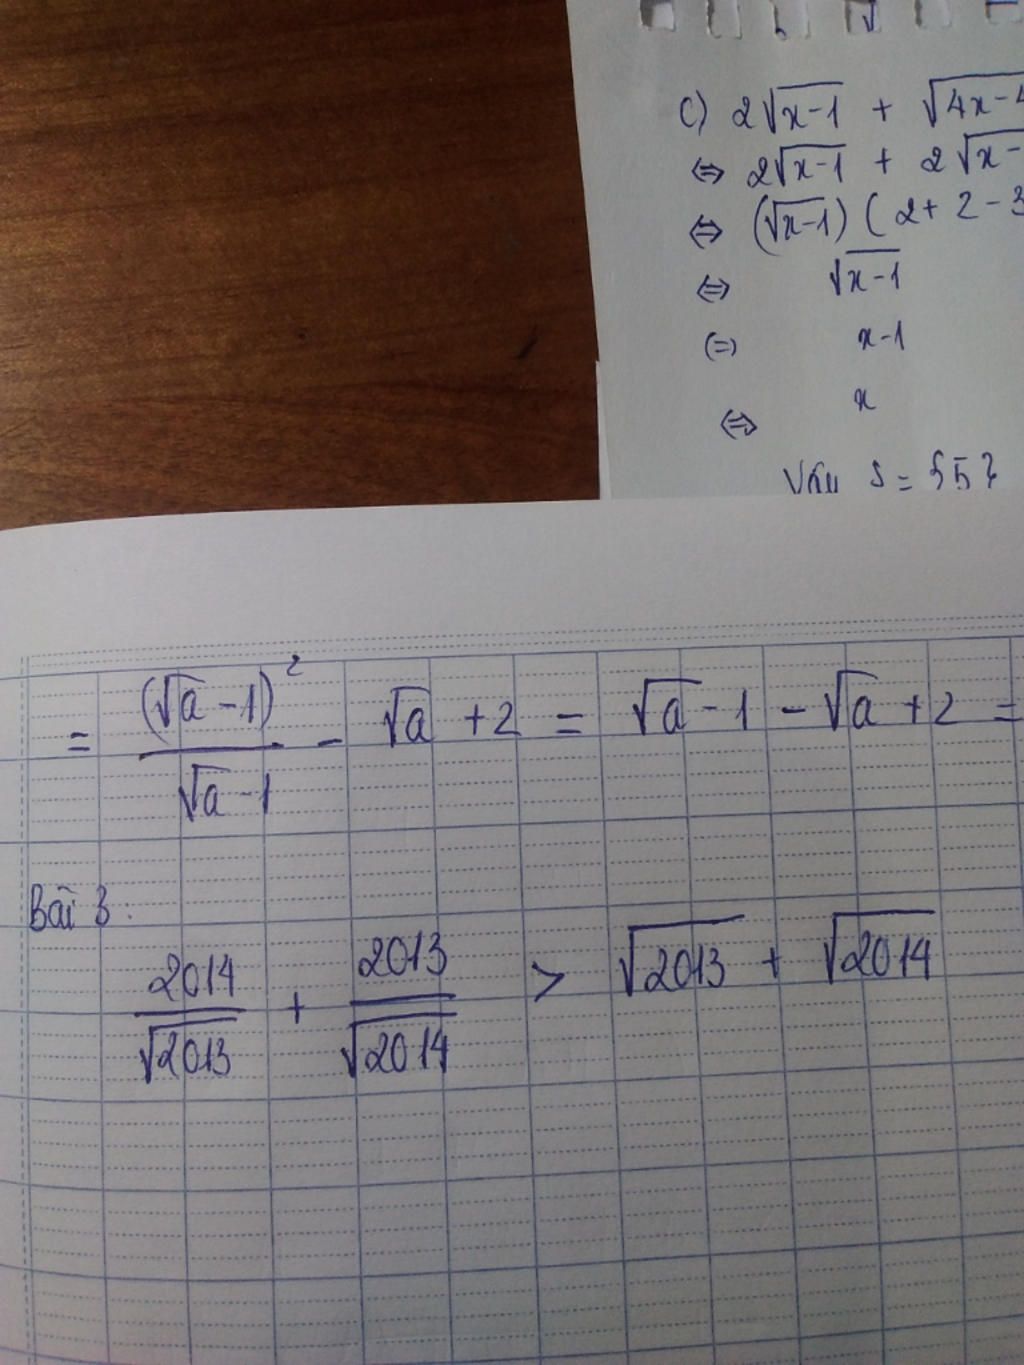 c) 2√(x-1) + √(4x-4
⇔ 2√(x-1) + 2√(x-
⇔ (√(x-1)) (2+2-3
⇔ √(x-1)
(=) x-1
⇔ x
Vậy S = {5}
= (√a - 1)² / (√a - 1) - √a + 2 = √a - 1 - √a + 2 =
Bài 3:
2014/√2013 + 2013/√2014 > √2013 + √2014